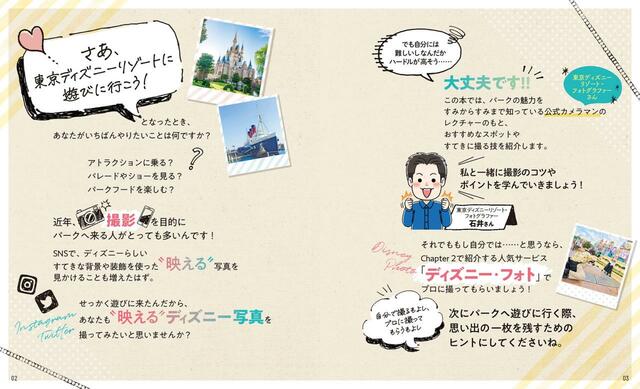 さあ、
東京ディズニーリゾートに
遊びに行こう！
となったとき、
あなたがいちばんやりたいことは何ですか？
アトラクションに乗る？
パレードやショーを見る？
パークフードを楽しむ？
？
近年、撮影を目的に
パークへ来る人がとっても多いんです！
SNSで、ディズニーらしい
すてきな背景や装飾を使った“映える”写真を
見かけることも増えたはず。
Instagram
Twitter
せっかく遊びに来たんだから、
あなたも“映える”ディズニー写真を
撮ってみたいと思いませんか？
02
でも自分には
難しいしなんだか
ハードルが高そう……
大丈夫です!!
東京ディズニー
リゾート・
フォトグラファー
さん
この本では、パークの魅力を
すみからすみまで知っている公式カメラマンの
レクチャーのもと、
おすすめなスポットや
すてきに撮る技を紹介します。
私と一緒に撮影のコツや
ポイントを学んでいきましょう！
東京ディズニーリゾート・
フォトグラファー
石井さん
Disney
Photo
それでももし自分では……と思うなら、
Chapter 2で紹介する人気サービス
「ディズニー・フォト」で
プロに撮ってもらいましょう！
自分で撮るもよし、
プロに撮って
もらうもよし
次にパークへ遊びに行く際、
思い出の一枚を残すための
ヒントにしてくださいね。
03